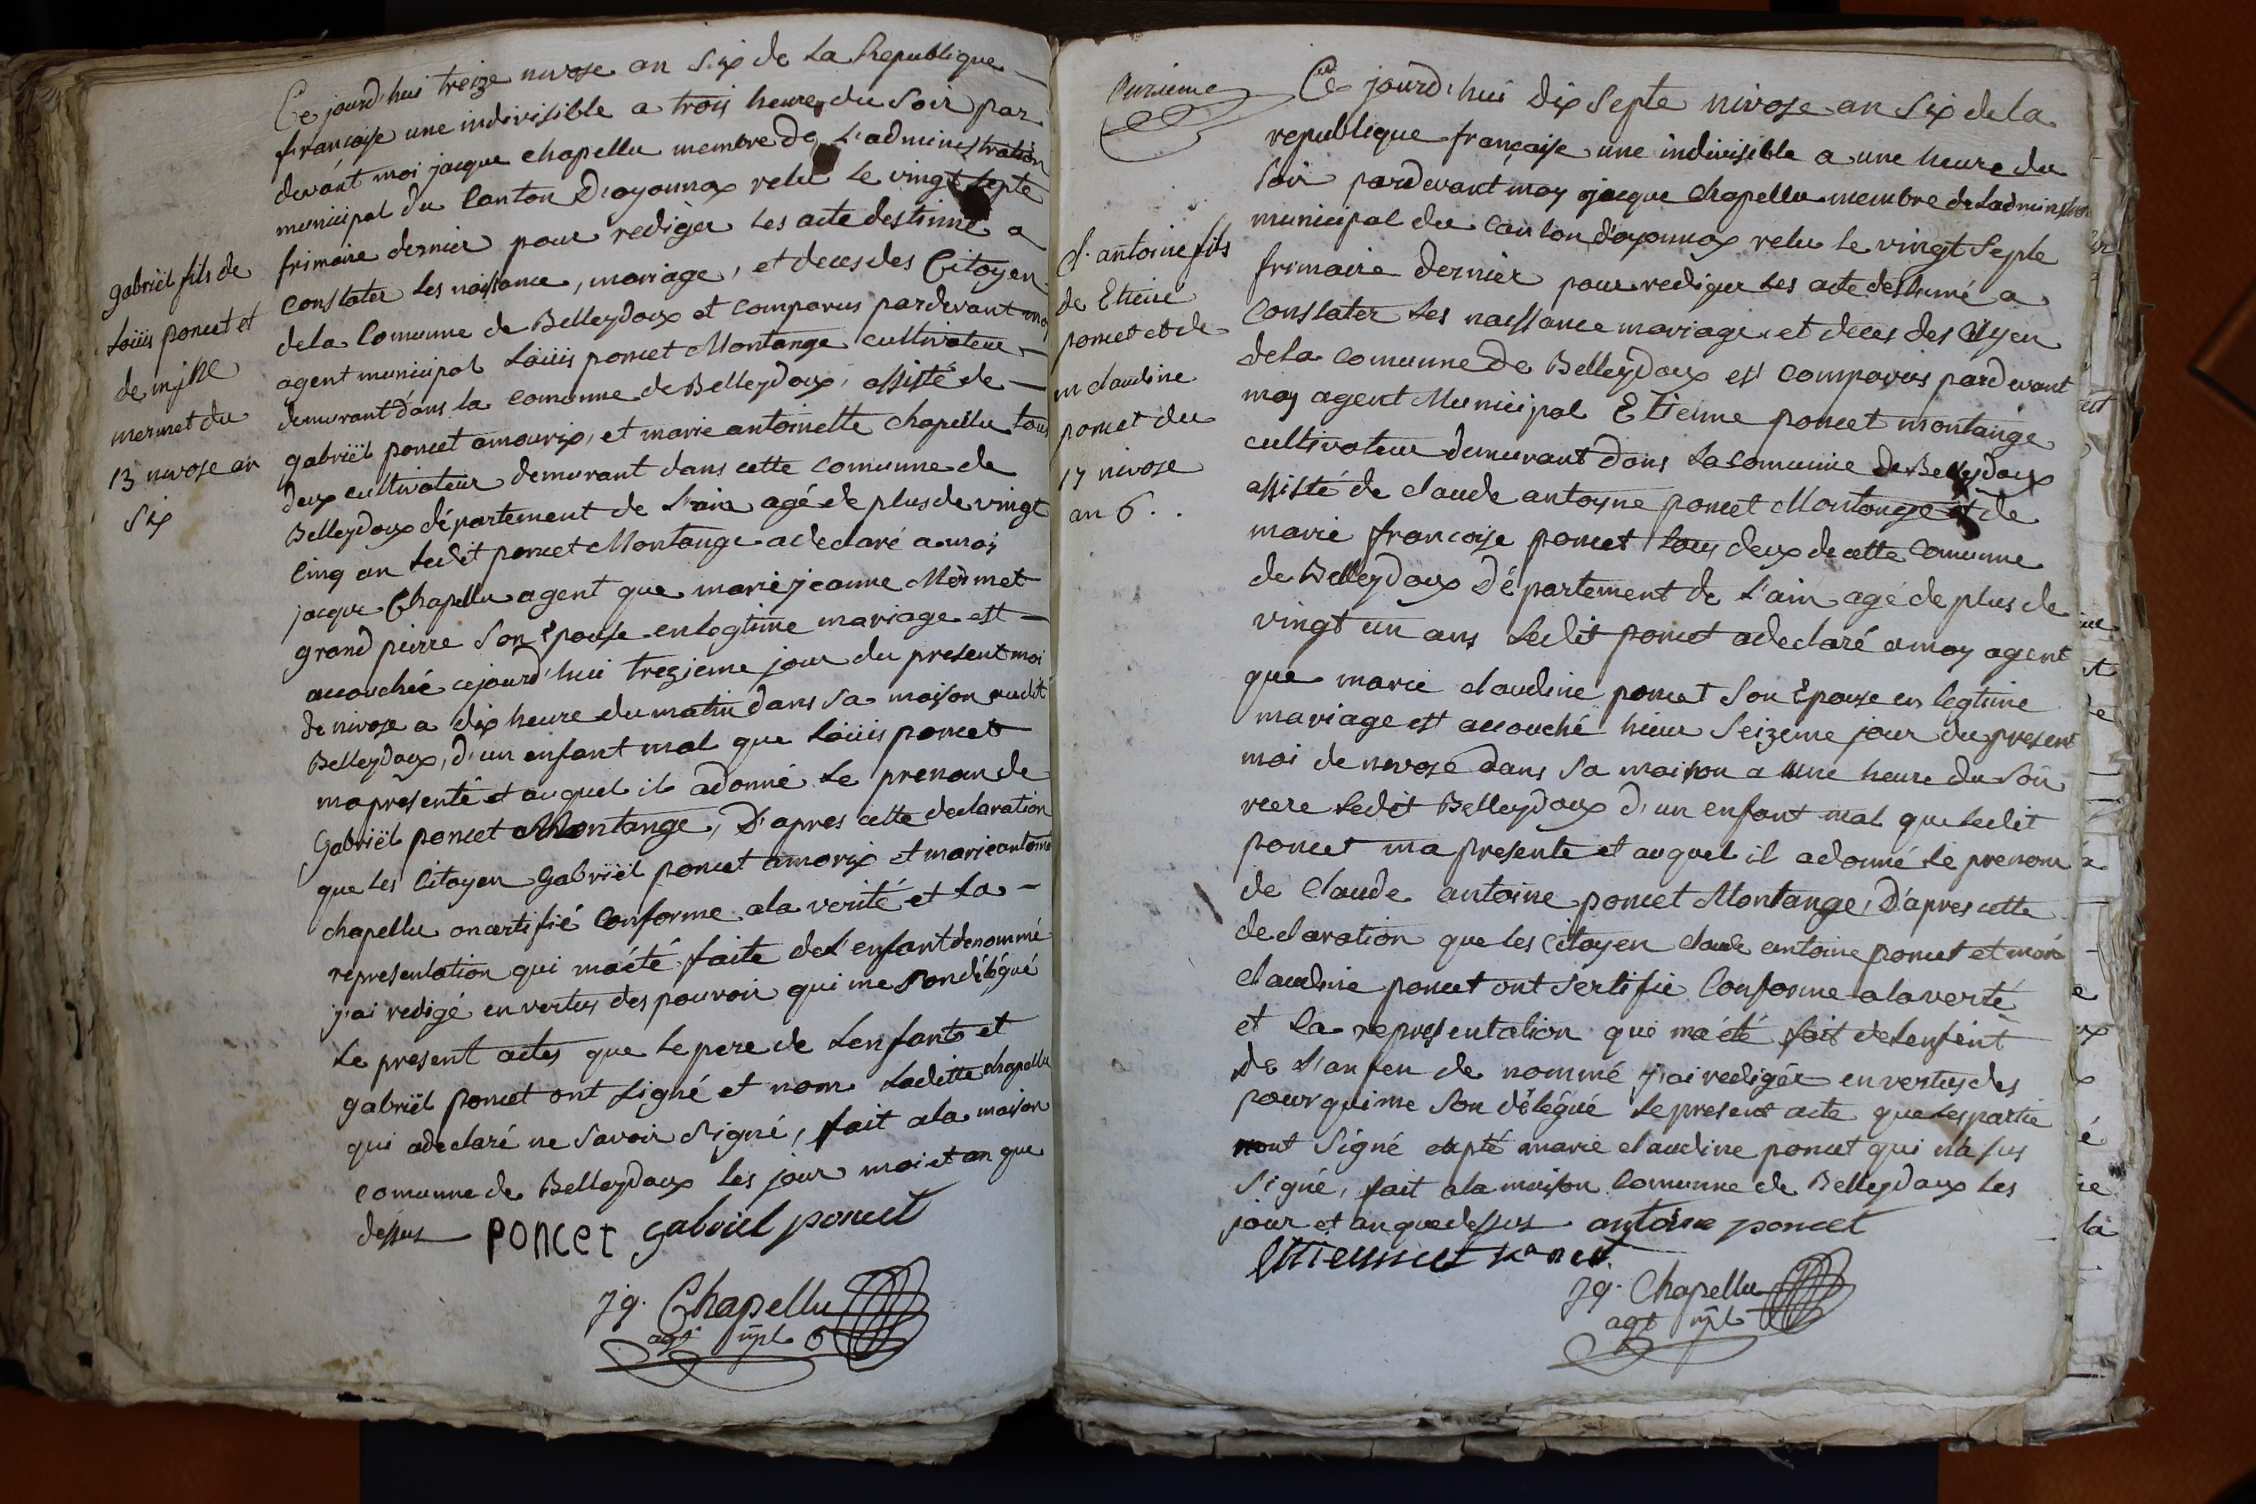 gabriël fils de
Loüis poncet et
de mj ne
mermet du
13 nivose an
Six
Ce jourd'hui treize nivose an Six de La Republique
francoise une indivisible a trois heures du Soir par
devant moi jacque chapellu membre de L'administration
municipal du Canton D'oyonnax relu Le vingt Septe
frimaire dernier pour rediger Les acte destinné a
Constater Les naissance, mariage, et deces des Citoyen
dela Comunne de Belleydoux et comparus pardevant moy
agent municipal Loüis poncet Montange cultivateur
demurant dans la comunne de Belleydoux, assisté de
gabriël poncet amourix, et marie antoinette chapellu tous
deux cultivateur demurant dans cette comunne de
Belleydoux département de L'ain agé de plus de vingt
Cinq an Ledit poncet Montange a declaré a moi
jacque Chapellu agent que marie jeanne Mermet
grand pierre Son Epouse en legtime mariage est
accouchée cejourd'hui trezieme jour du present moi
de nivose a dix heure du matin dans Sa maison audit
Belleydoux, d'un enfant mal que Loüis poncet
ma presenté et auquel il adonné Le prenon de
Gabriël poncet Montange, D'apres cette declaration
que les Citoyen Gabriël poncet amorix et marie antoine
chapellu on artifié Conforme ala verité et La
representation qui ma été faite de L'enfant denommé
j'ai redigé en vertus des pouvoir qui me Son délégué
Le present actes que Le pere de Lenfant et
gabriël poncet ont Signé et nom Laditte chapellu
qui adeclaré ne Savoir Signé, fait ala maison
comunne de Belleydoux les jour moi et an que
dessus poncet gabriel poncet
jq. Chapellu
agt mpl
C. antoine fils
de Etiene
poncet et de
m claudine
poncet du
17 nivose
an 6 . .
Ce jourd'hui Dix Septe nivose an Six de la
republique française une indivisible a une heure du
Soir pardevant moy jacque Chapellu membre de Ladminstration
municipal du Canton d'oyonnax relu le vingt Septe
frimaire dernier pour rediger Les acte destinné a
Constater Les naissance mariage et deces des Citoyen
dela comunne de Belleydoux est comparus pardevant
moy agent Municipal Etienne poncet montange
cultivateur demeurant dans La comunne de Belleydoux
assisté de claude antoyne poncet Montange et de
marie francoise poncet tous deux de cette Comunne
de Belleydoux Département de L'ain agé de plus de
vingt un ans Ledit poncet adeclaré amoy agent
que marie claudine poncet Son Epouse en legtime
mariage est accouché hier Seizeme jour du present
moi de nivose dans Sa maison a une heure du Soir
riere Ledit Belleydoux d'un enfant mal que Ledit
poncet ma presente et auquel il adonné Le prenom
de Claude antoine poncet Montange, D'apres cette
declaration que les Citoyen claude antoine poncet et marie
claudine poncet ont Sertifie Conforme ala verté
et La representation qui ma été fait de Lenfent
de L'anfen de nommé j'ai redigée en vertus des
pouvr qui me Son délégué Le present acte que Les partie
mont Signé expté marie claudine poncet qui na sus
Signé, fait ala maison Comunne de Belleydoux Les
jour et an que dessus antoine poncet
Ettienne poncet
jq. Chapellu
agt mpl